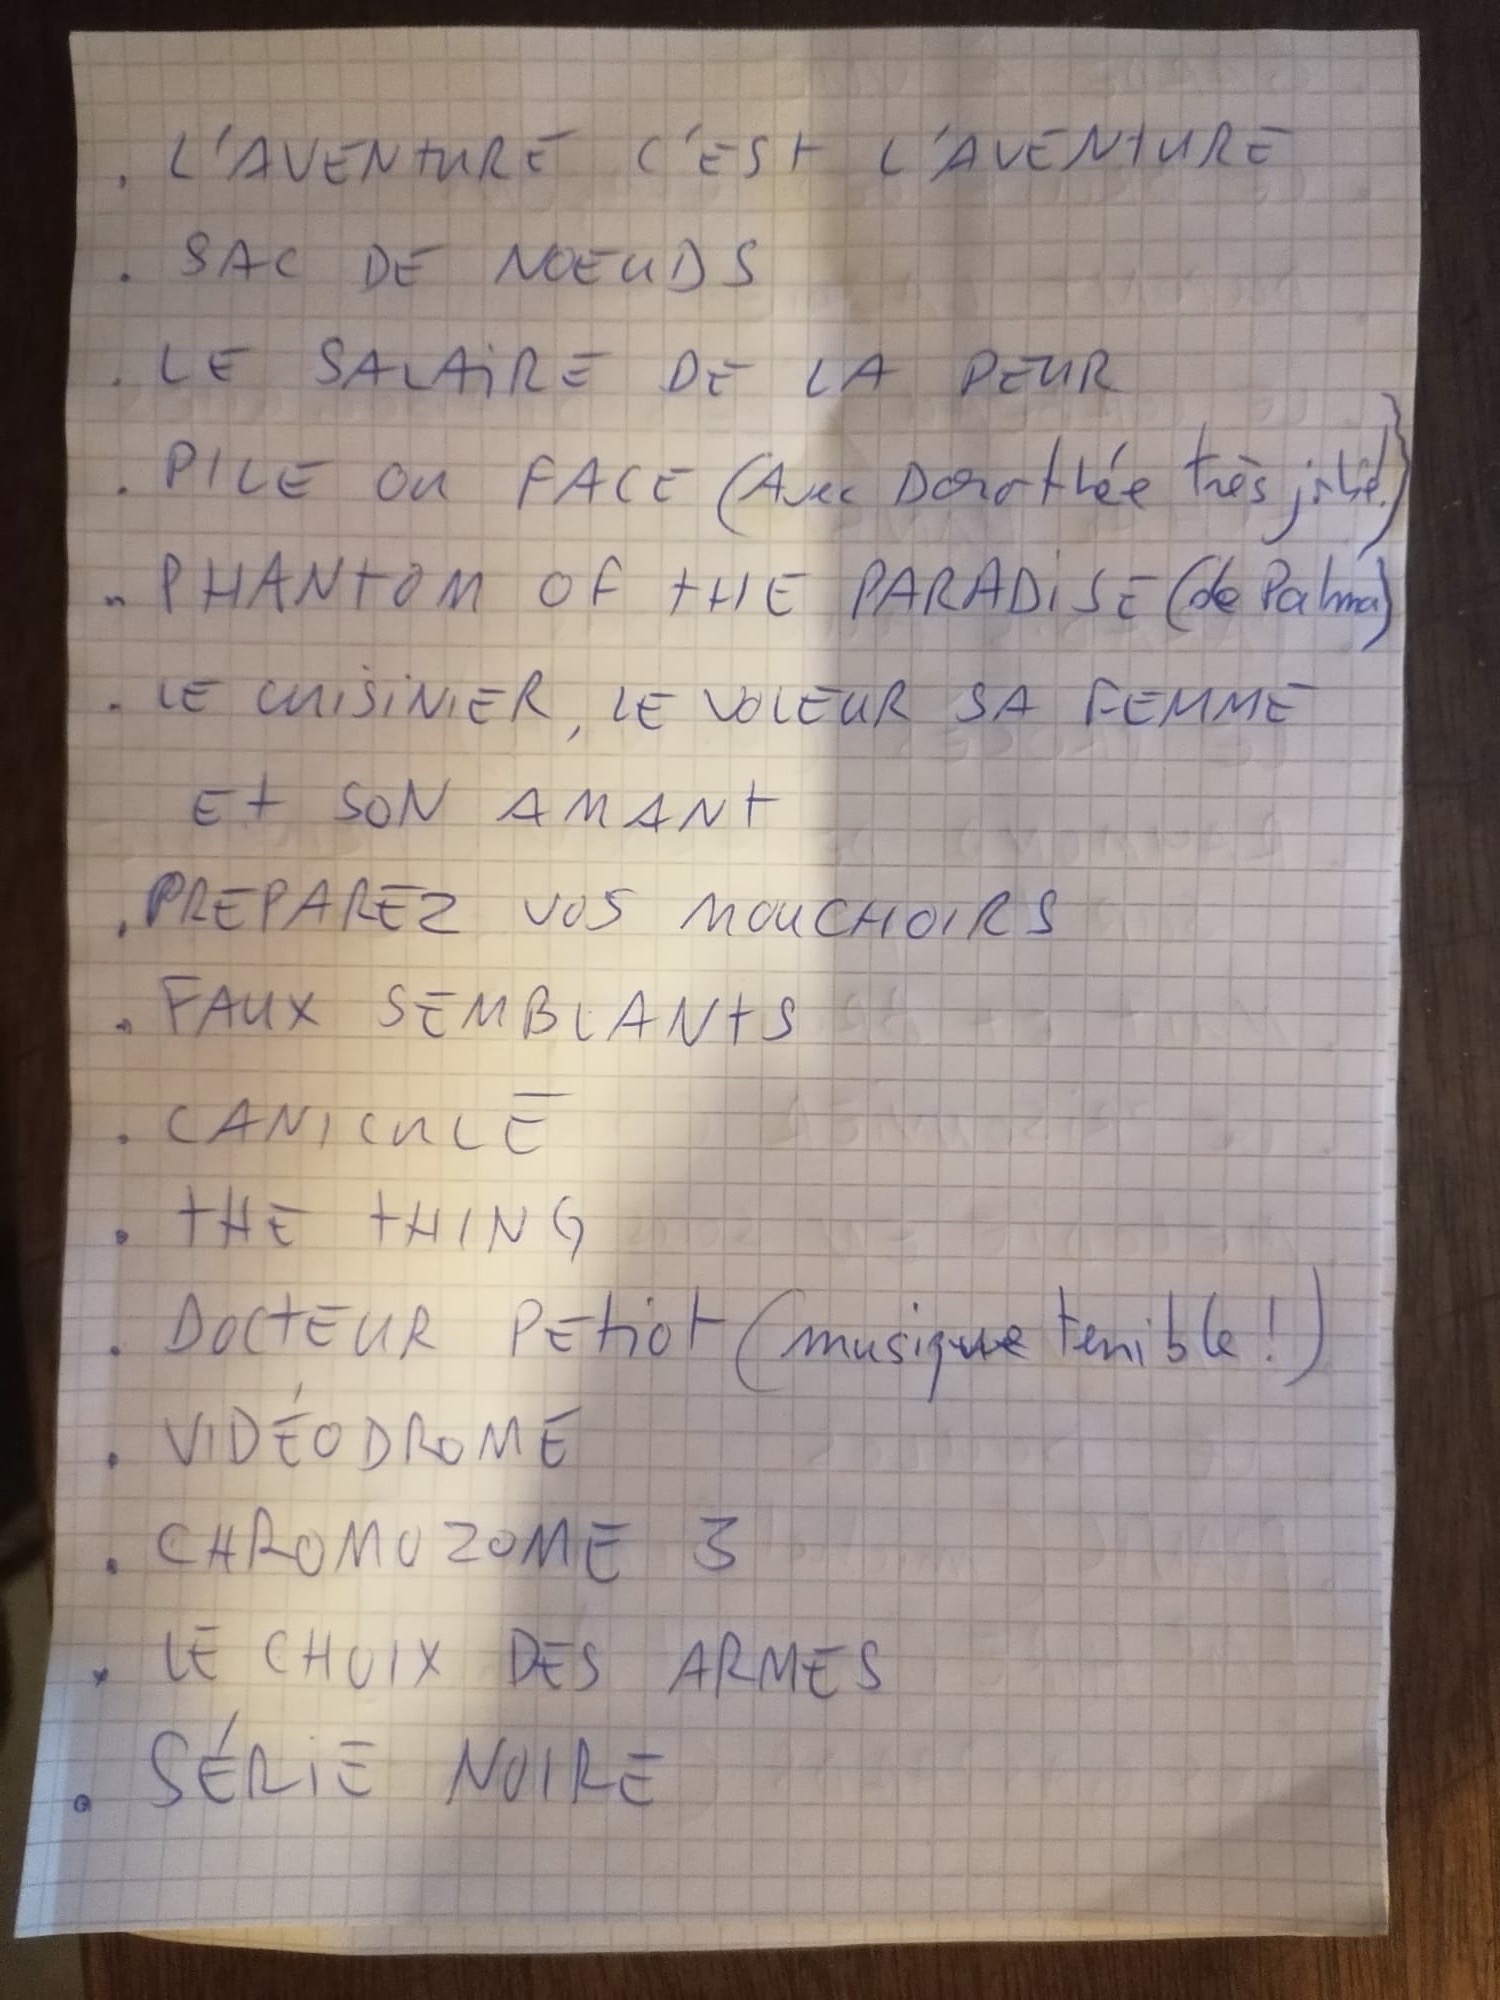 . L'AVENTURE C'EST L'AVENTURE
. SAC DE NOEUDS
. LE SALAiRE DE LA PEUR
. PILE OU FACE (Avec Dorothée très jolie!)
. PHANTOM OF THE PARADiSE (de Palma)
. LE CUISINIER, LE VOLEUR SA FEMME
ET SON AMANT
. PREPAREZ VOS MOUCHOIRS
. FAUX SEMBLANTS
. CANICULE
. THE THING
. DOCTEUR PETiOT (musique terrible!)
. VIDÉODROME
. CHROMOZOME 3
. LE CHOIX DES ARMES
. SÉRiE NOIRE